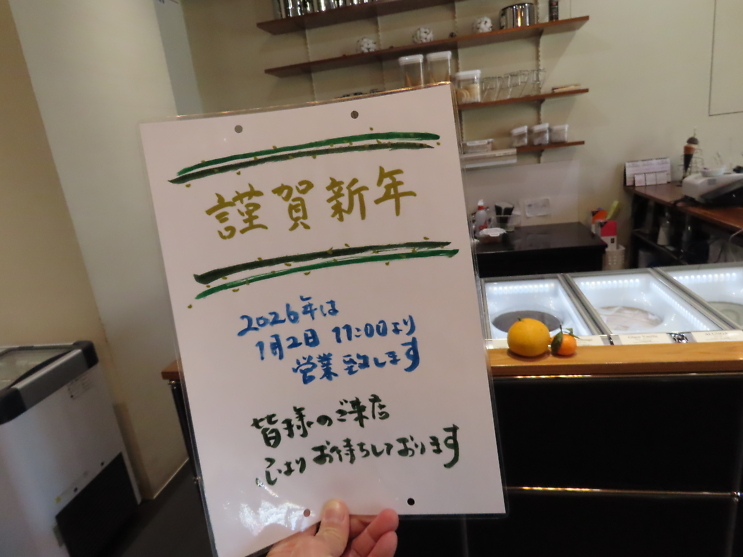 謹賀新年
2026年は
1月2日 11:00より
営業致します
皆様のご来店
心よりお待ちしております